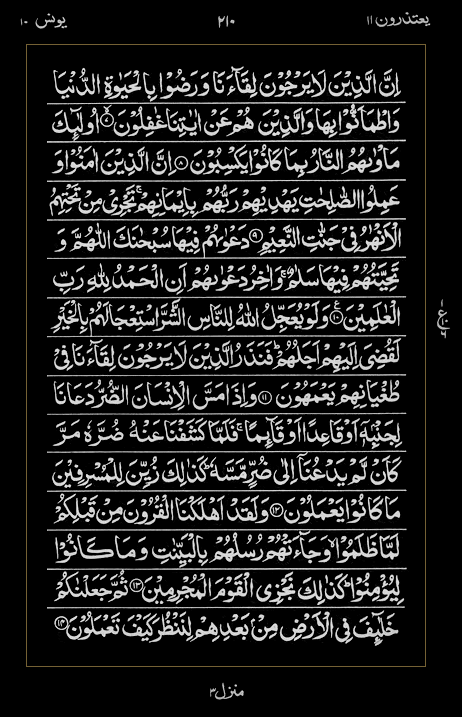 یعتذرون ۱۱
۲۱۰
یونس ۱۰
اِنَّ الَّذِیْنَ لَا یَرْجُوْنَ لِقَآءَنَا وَرَضُوْا بِالْحَیٰوةِ الدُّنْیَا
وَاطْمَاَنُّوْا بِهَا وَالَّذِیْنَ هُمْ عَنْ اٰیٰتِنَا غٰفِلُوْنَ ۷ اُولٰٓئِكَ
مَاْوٰىهُمُ النَّارُ بِمَا كَانُوْا یَكْسِبُوْنَ ۸ اِنَّ الَّذِیْنَ اٰمَنُوْا وَ
عَمِلُوا الصّٰلِحٰتِ یَهْدِیْهِمْ رَبُّهُمْ بِاِیْمَانِهِمْ ۚ تَجْرِیْ مِنْ تَحْتِهِمُ
الْاَنْهٰرُ فِیْ جَنّٰتِ النَّعِیْمِ ۹ دَعْوٰىهُمْ فِیْهَا سُبْحٰنَكَ اللّٰهُمَّ وَ
تَحِیَّتُهُمْ فِیْهَا سَلٰمٌ ۚ وَاٰخِرُ دَعْوٰىهُمْ اَنِ الْحَمْدُ لِلّٰهِ رَبِّ
الْعٰلَمِیْنَ ۱۰ وَلَوْ یُعَجِّلُ اللّٰهُ لِلنَّاسِ الشَّرَّ اسْتِعْجَالَهُمْ بِالْخَیْرِ
لَقُضِیَ اِلَیْهِمْ اَجَلُهُمْ ؕ فَنَذَرُ الَّذِیْنَ لَا یَرْجُوْنَ لِقَآءَنَا فِیْ
طُغْیَانِهِمْ یَعْمَهُوْنَ ۱۱ وَاِذَا مَسَّ الْاِنْسَانَ الضُّرُّ دَعَانَا
لِجَنْۢبِهٖۤ اَوْ قَاعِدًا اَوْ قَآئِمًا ۚ فَلَمَّا كَشَفْنَا عَنْهُ ضُرَّهٗ مَرَّ
كَاَنْ لَّمْ یَدْعُنَاۤ اِلٰی ضُرٍّ مَّسَّهٗ ؕ كَذٰلِكَ زُیِّنَ لِلْمُسْرِفِیْنَ
مَا كَانُوْا یَعْمَلُوْنَ ۱۲ وَلَقَدْ اَهْلَكْنَا الْقُرُوْنَ مِنْ قَبْلِكُمْ
لَمَّا ظَلَمُوْا ۙ وَجَآءَتْهُمْ رُسُلُهُمْ بِالْبَیِّنٰتِ وَمَا كَانُوْا
لِیُؤْمِنُوْا ؕ كَذٰلِكَ نَجْزِی الْقَوْمَ الْمُجْرِمِیْنَ ۱۳ ثُمَّ جَعَلْنٰكُمْ
خَلٰٓئِفَ فِی الْاَرْضِ مِنْۢ بَعْدِهِمْ لِنَنْظُرَ كَیْفَ تَعْمَلُوْنَ ۱۴
منزل ۳